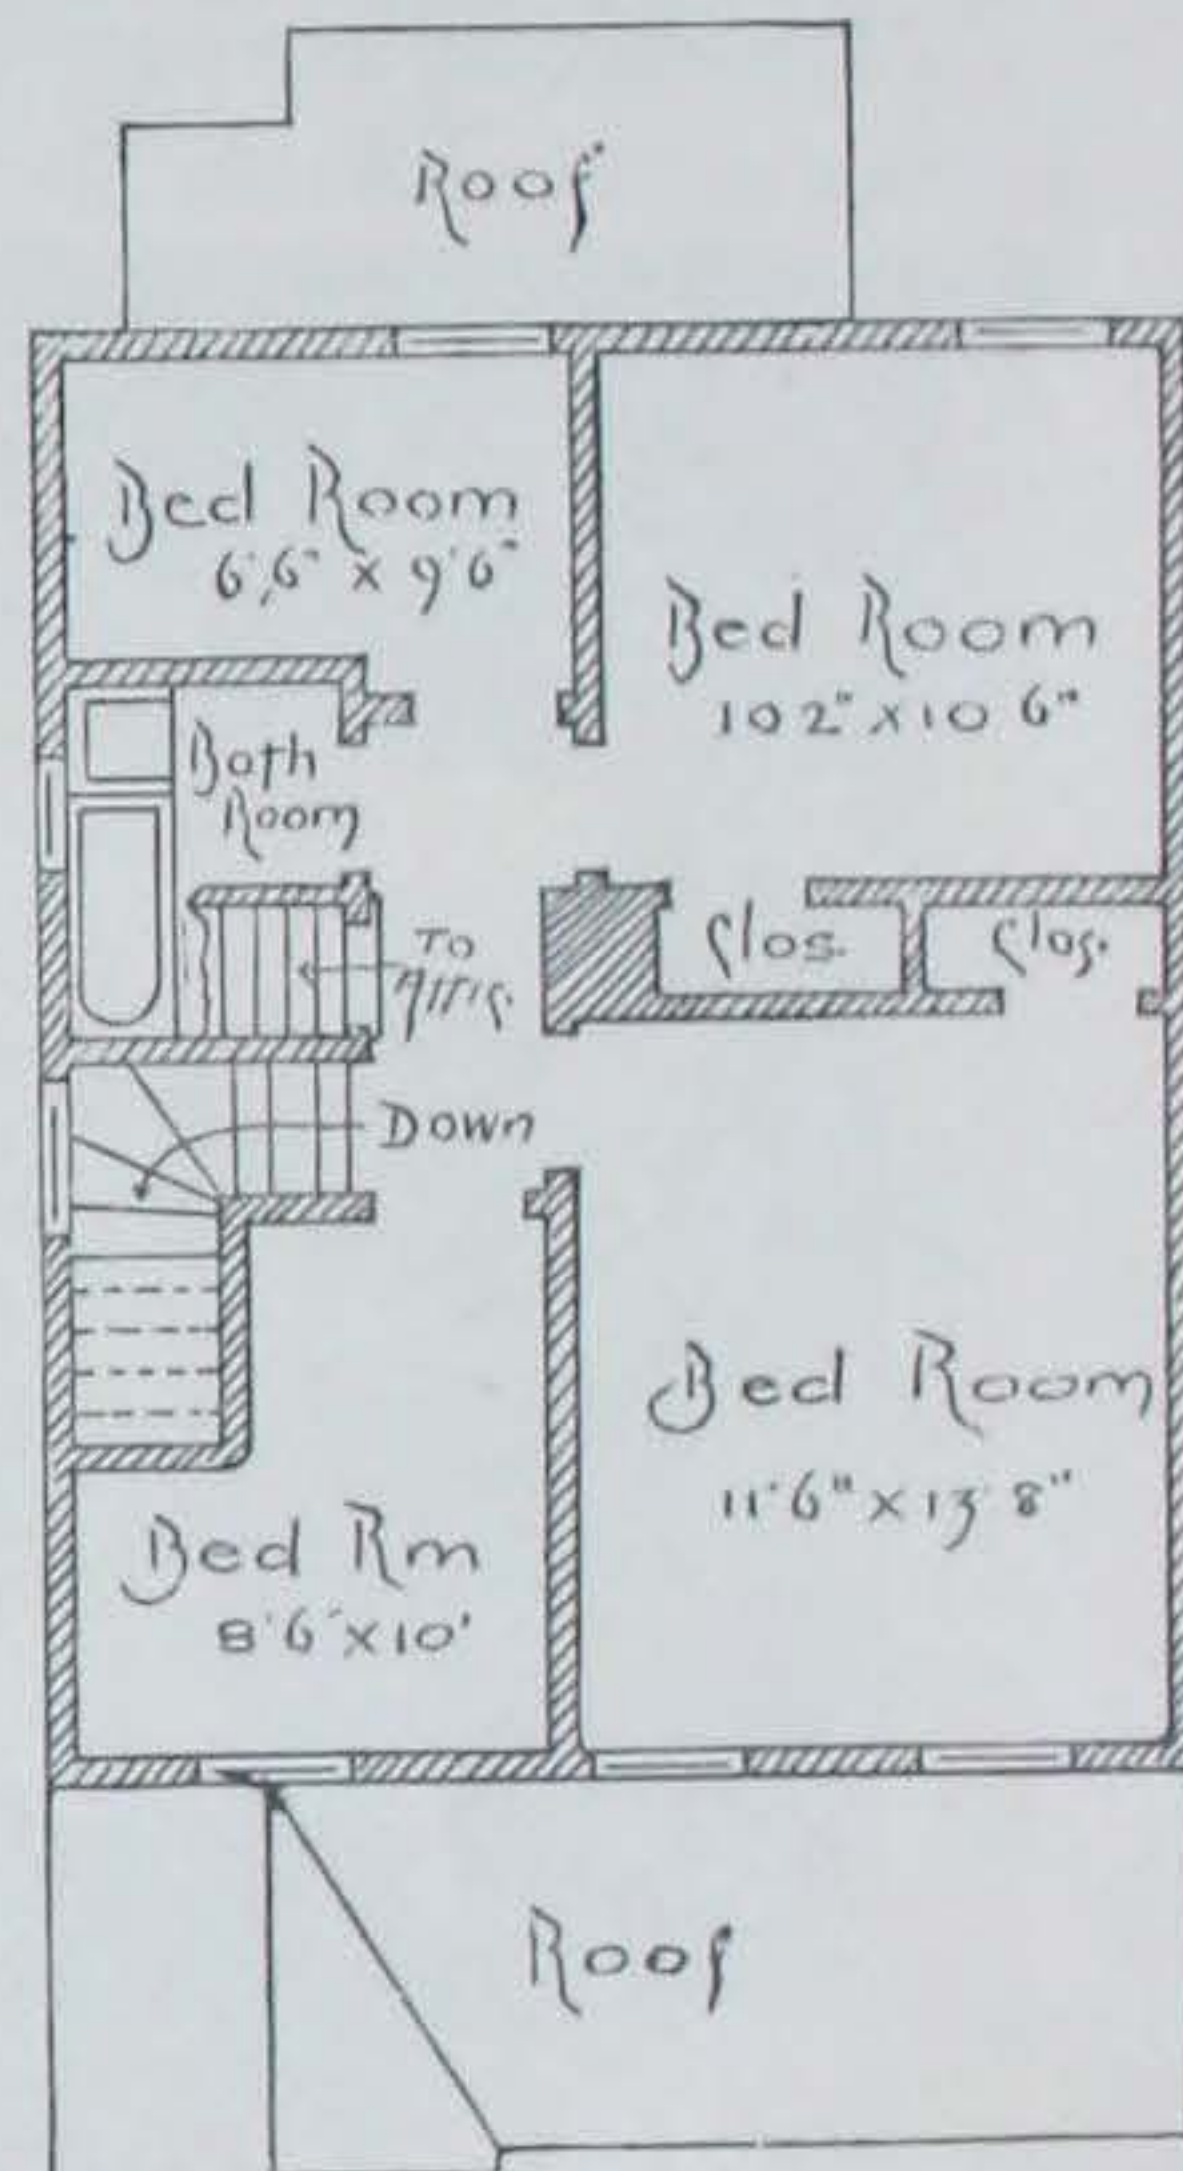 Roof
Bed Room
6'6" x 9'6"
Bed Room
10 2" x 10 6"
Bath
Room
Clos.
Clos.
To
Attic.
Down
Bed Room
11'6" x 13'8"
Bed Rm
8'6" x 10'
Roof